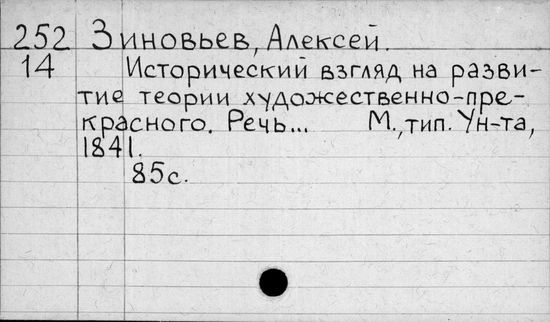 252 Зиновьев, Алексей.
14 Исторический взгляд на разви-
тие теории художественно-пре-
красного. Речь... М., тип. Ун-та,
1841.
85с.